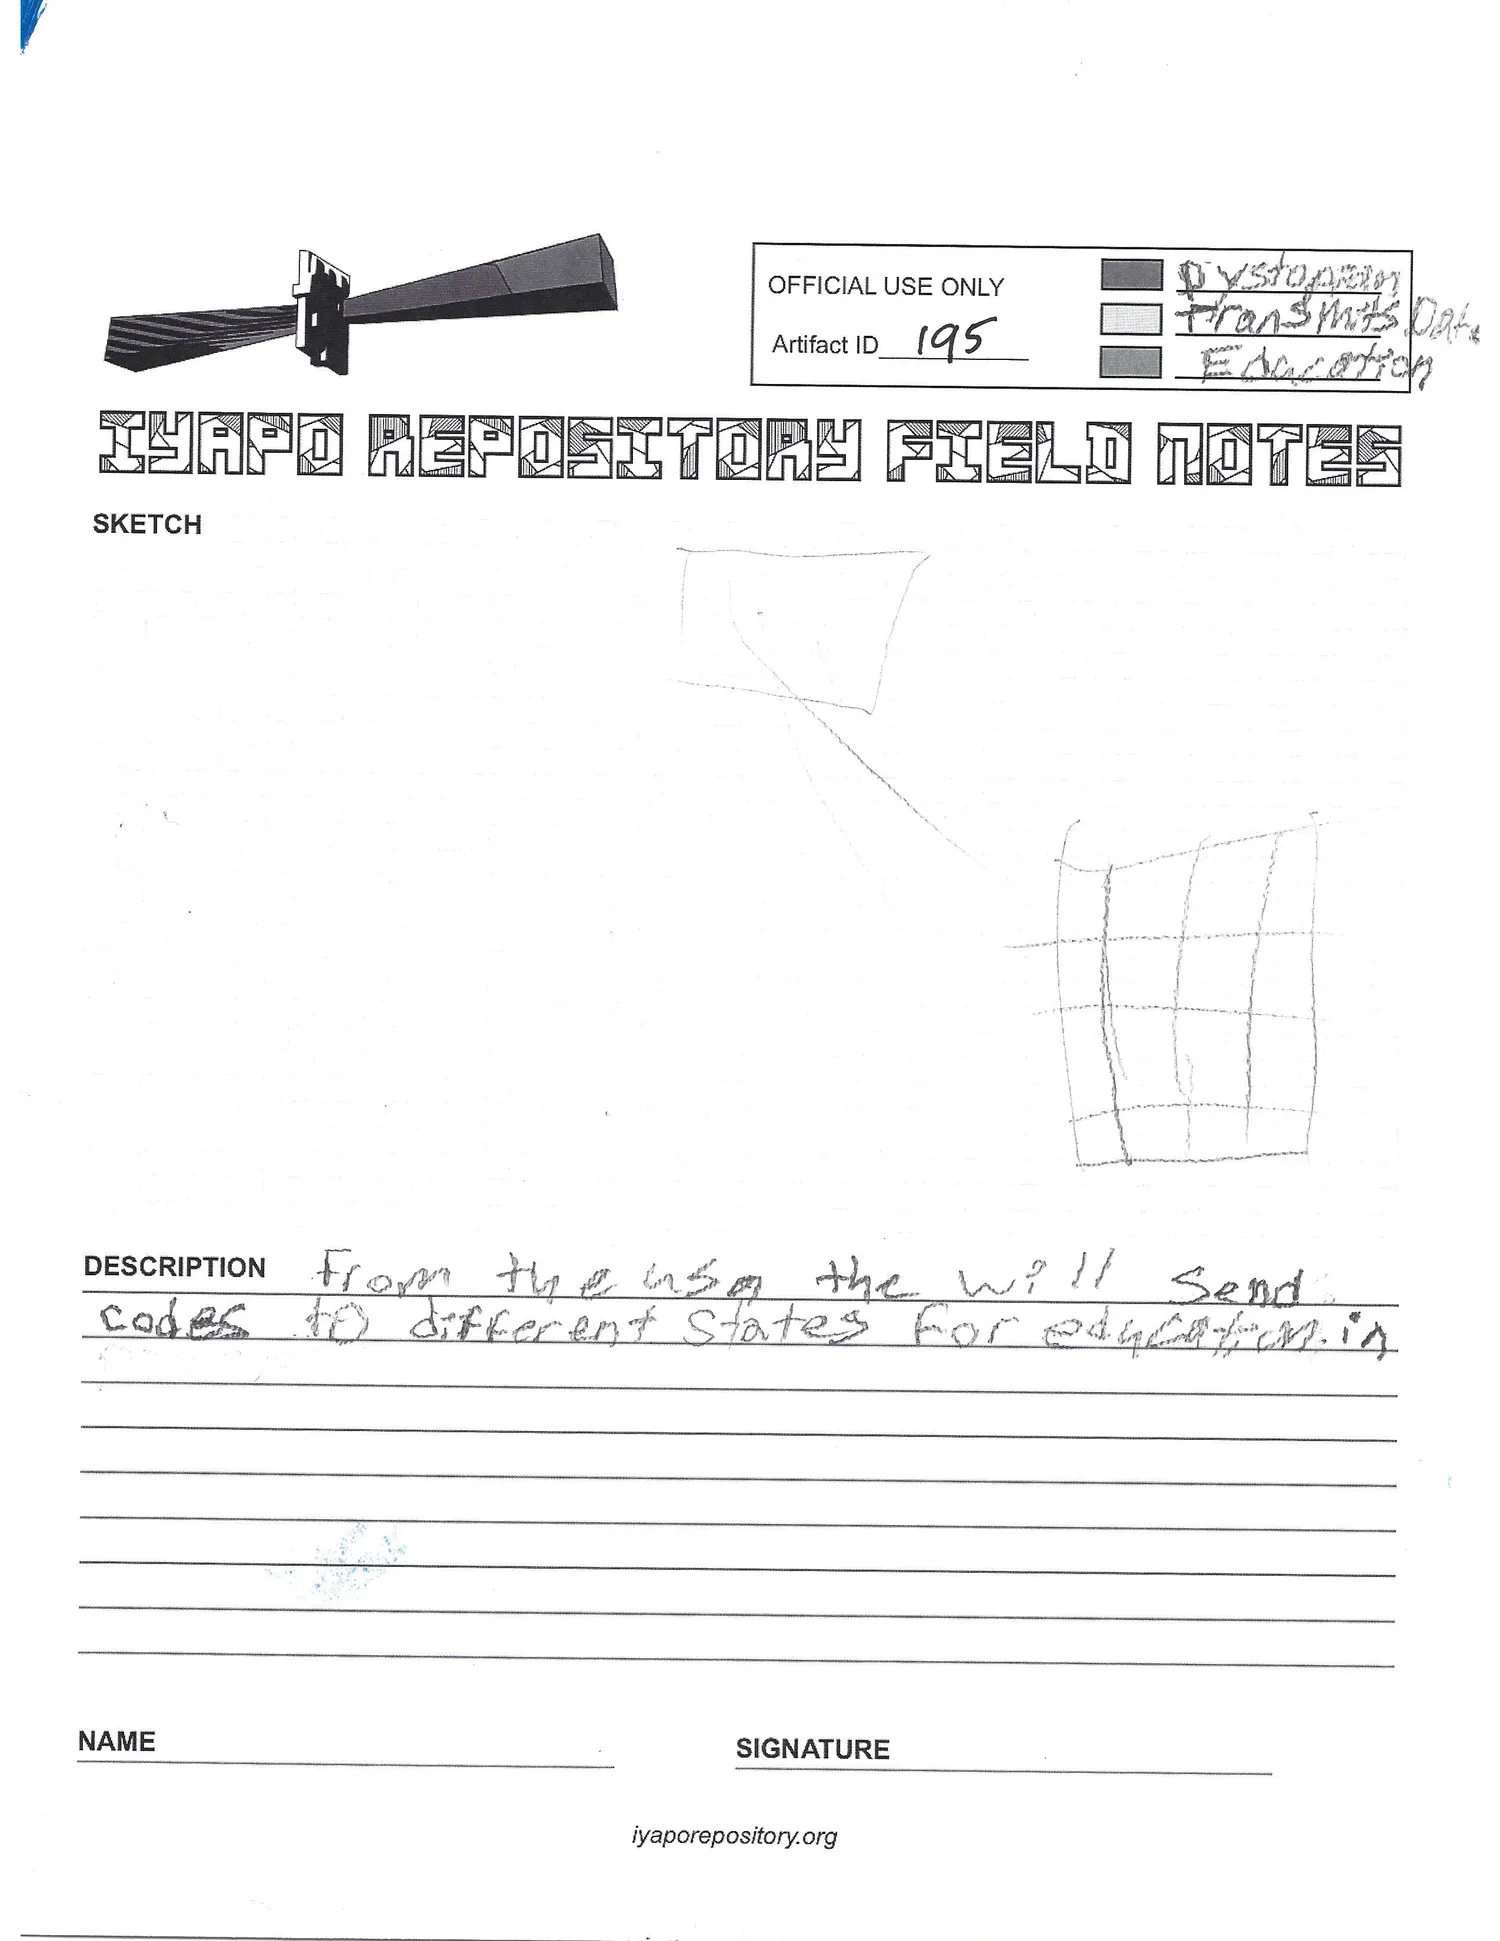 OFFICIAL USE ONLY
Artifact ID 195
Dystopian
transmits Dat.
Education
IYAPO REPOSITORY FIELD NOTES
SKETCH
DESCRIPTION From the usa the will Send
codes to different States For education. in
NAME
SIGNATURE
iyaporepository.org